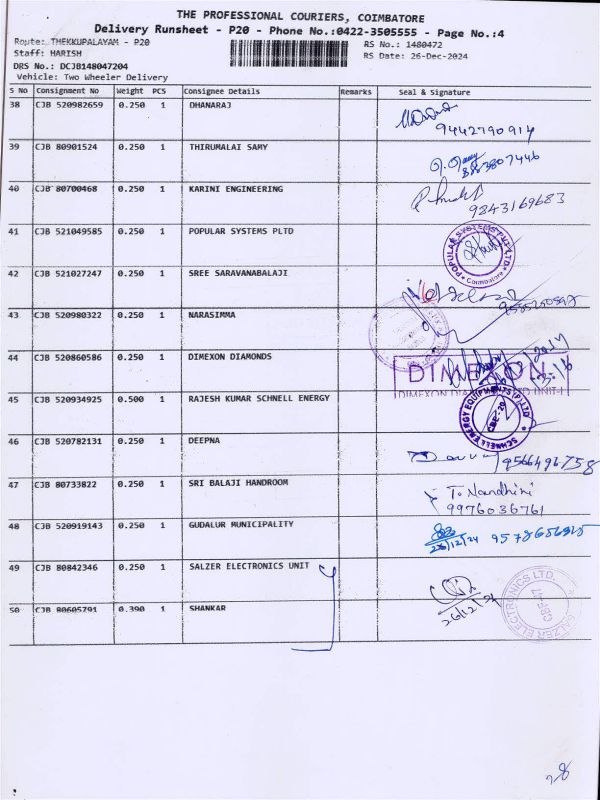 THE PROFESSIONAL COURIERS, COIMBATORE
Delivery Runsheet - P20 - Phone No.:0422-3505555 - Page No.:4
Route: THEKKUPALAYAM - P20 RS No.: 1480472
Staff: HARISH RS Date: 26-Dec-2024
DRS No.: DCJB148047204
Vehicle: Two Wheeler Delivery
S No Consignment No Weight PCS Consignee Details Remarks Seal & Signature
38 CJB 520982659 0.250 1 DHANARAJ
9442790914
39 CJB 80901524 0.250 1 THIRUMALAI SAMY
8883807446
40 CJB 80700468 0.250 1 KARINI ENGINEERING
9843169683
41 CJB 521049585 0.250 1 POPULAR SYSTEMS PLTD
POPULAR SYSTEMS PVT LTD
Coimbatore
42 CJB 521027247 0.250 1 SREE SARAVANABALAJI
43 CJB 520980322 0.250 1 NARASIMMA
44 CJB 520860586 0.250 1 DIMEXON DIAMONDS
DIMEXON
45 CJB 520934925 0.500 1 RAJESH KUMAR SCHNELL ENERGY
SCHNELL ENERGY EQUIPMENTS (P) LTD
CBE-20
46 CJB 520782131 0.250 1 DEEPNA
9566496758
47 CJB 80733822 0.250 1 SRI BALAJI HANDROOM
To Nandhini
9976036761
48 CJB 520919143 0.250 1 GUDALUR MUNICIPALITY
26/12/24
49 CJB 80842346 0.250 1 SALZER ELECTRONICS UNIT
SALZER ELECTRONICS LTD.
50 CJB 80605791 0.390 1 SHANKAR
26/12/24